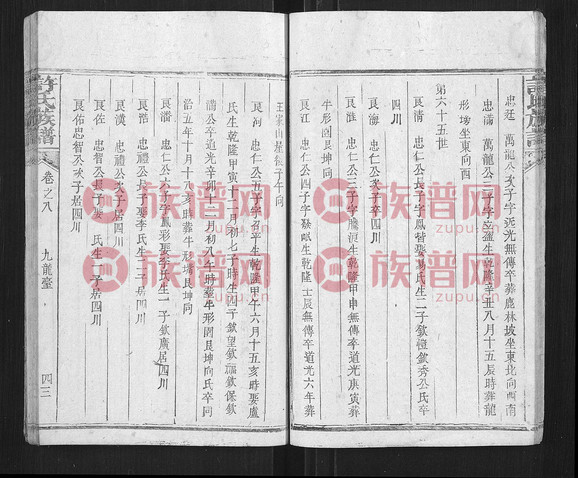 許氏族譜
忠廷 萬龍公次子字 光無傳卒葬鹿林坡坐東北向西南
忠滿 萬龍公三子字 生乾隆辛丑八月十五辰時葬龍
形坳坐東向西
第六十五世
艮清 忠仁公長子字鳳 娶楊氏生二子欽 欽秀公氏卒
四川
艮海 忠仁公次子卒四川
艮淮 忠仁公三子字騰 生乾隆甲申無傳卒道光庚寅葬
牛形岡艮坤向
艮江 忠仁公四子字 生乾隆壬辰無傳卒道光六年葬
王 山 子午向
艮河 忠仁公五子字召 生乾隆甲午六月十五亥時娶盧
氏生乾隆甲寅十二月初七子時生四子欽望欽 欽保欽
滿公卒道光辛卯十二月初八午時葬牛形岡艮坤向氏卒同
治五年十月十八亥時葬牛形 艮坤向
艮潘 忠仁公六子字鳳彩娶 氏生二子欽 欽廣居四川
艮浩 忠禮公長子娶李氏生二三居四川
艮漢 忠禮公次子居四川
艮佐 忠智公長子娶 氏生二子居四川
艮佑忠智公次子居四川
許氏族譜
卷之八
九龍臺
四三
族谱网
zupu.cn
族谱网
zupu.cn
族谱网
zupu.cn
族谱网
zupu.cn